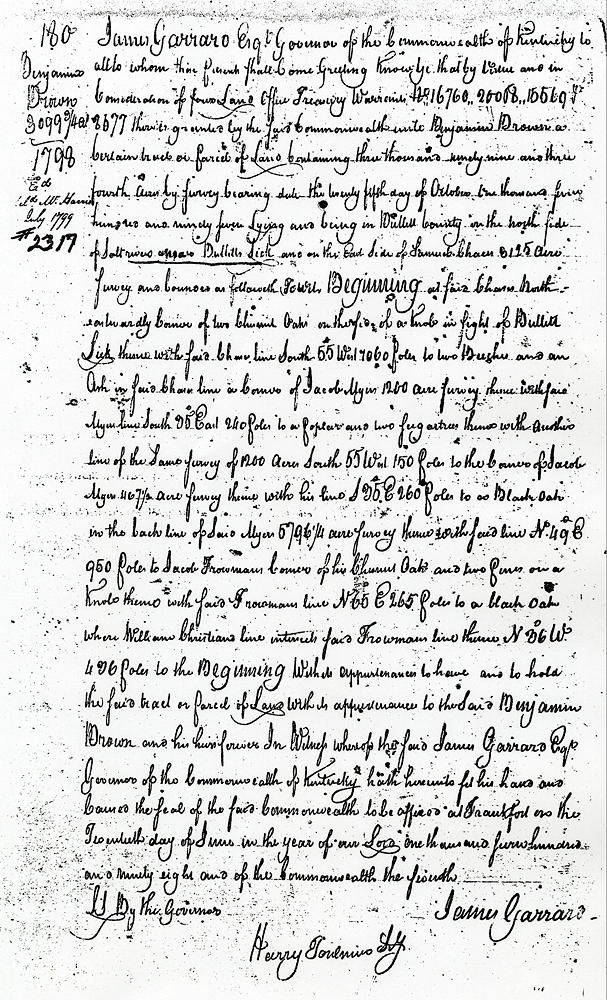 180
Benjamin
Brown
3099¾ a
1798
Ex'd
July 1799
#2317
James Garrard Esqr Governor of the Commonwealth of Kentucky to
all to whom these presents shall Come Greeting Know Ye that by virtue and in
Consideration of four Land Office Treasury Warrants No 16760,, 20018,, 15569 &
8577 there is granted by the said Commonwealth unto Benjamin Brown a
certain tract or parcel of Land Containing three thousand ninety nine and three
fourth Acres by Survey bearing date the twenty fifth day of October One thousand seven
hundred and ninety seven Lying and being in Bullitt County on the north side
of Salt river near Bullitts Lick and on the East Side of Samuel Chases 8125 acre
Survey and bounded as followeth Towit Beginning at said Chases North
eastwardly Corner of two Chesnut Oaks on the side of a Knob in sight of Bullitt
Lick thence with said Chase line South 55 West 1060 poles to two Beeches and an
Ash in said Chase line a Corner of Jacob Myers 1200 acre Survey thence with said
Myers line South 35 East 240 poles to a poplar and two sugartrees thence with another
line of the same Survey of 1200 Acres South 55 West 150 poles to the Corner of Jacob
Myers 407½ acre Survey thence with his line S 35 E 260 poles to a Black Oak
in the back line of said Myers 5796¼ acre Survey thence with said line N 49 E
950 poles to Jacob Frowmans Corner of his Chesnut Oak and two pines on a
Knob thence with said Frowmans line N 65 E 265 poles to a black Oak
where William Christians line intersects said Frowmans line thence N 36 W
436 poles to the Beginning With its appurtenances to have and to hold
the said tract or parcel of Land with its appurtenance to the said Benjamin
Brown and his heirs forever In Witness whereof the said James Garrard Esqr
Governor of the Commonwealth of Kentucky hath hereunto set his hand and
Caused the seal of the said Commonwealth to be affixed at Frankfort on the
Twentieth day of June in the year of our Lord one thousand seven hundred
and ninety eight and of the Commonwealth the seventh
LS By the Governor James Garrard
Harry Toulmin Secy